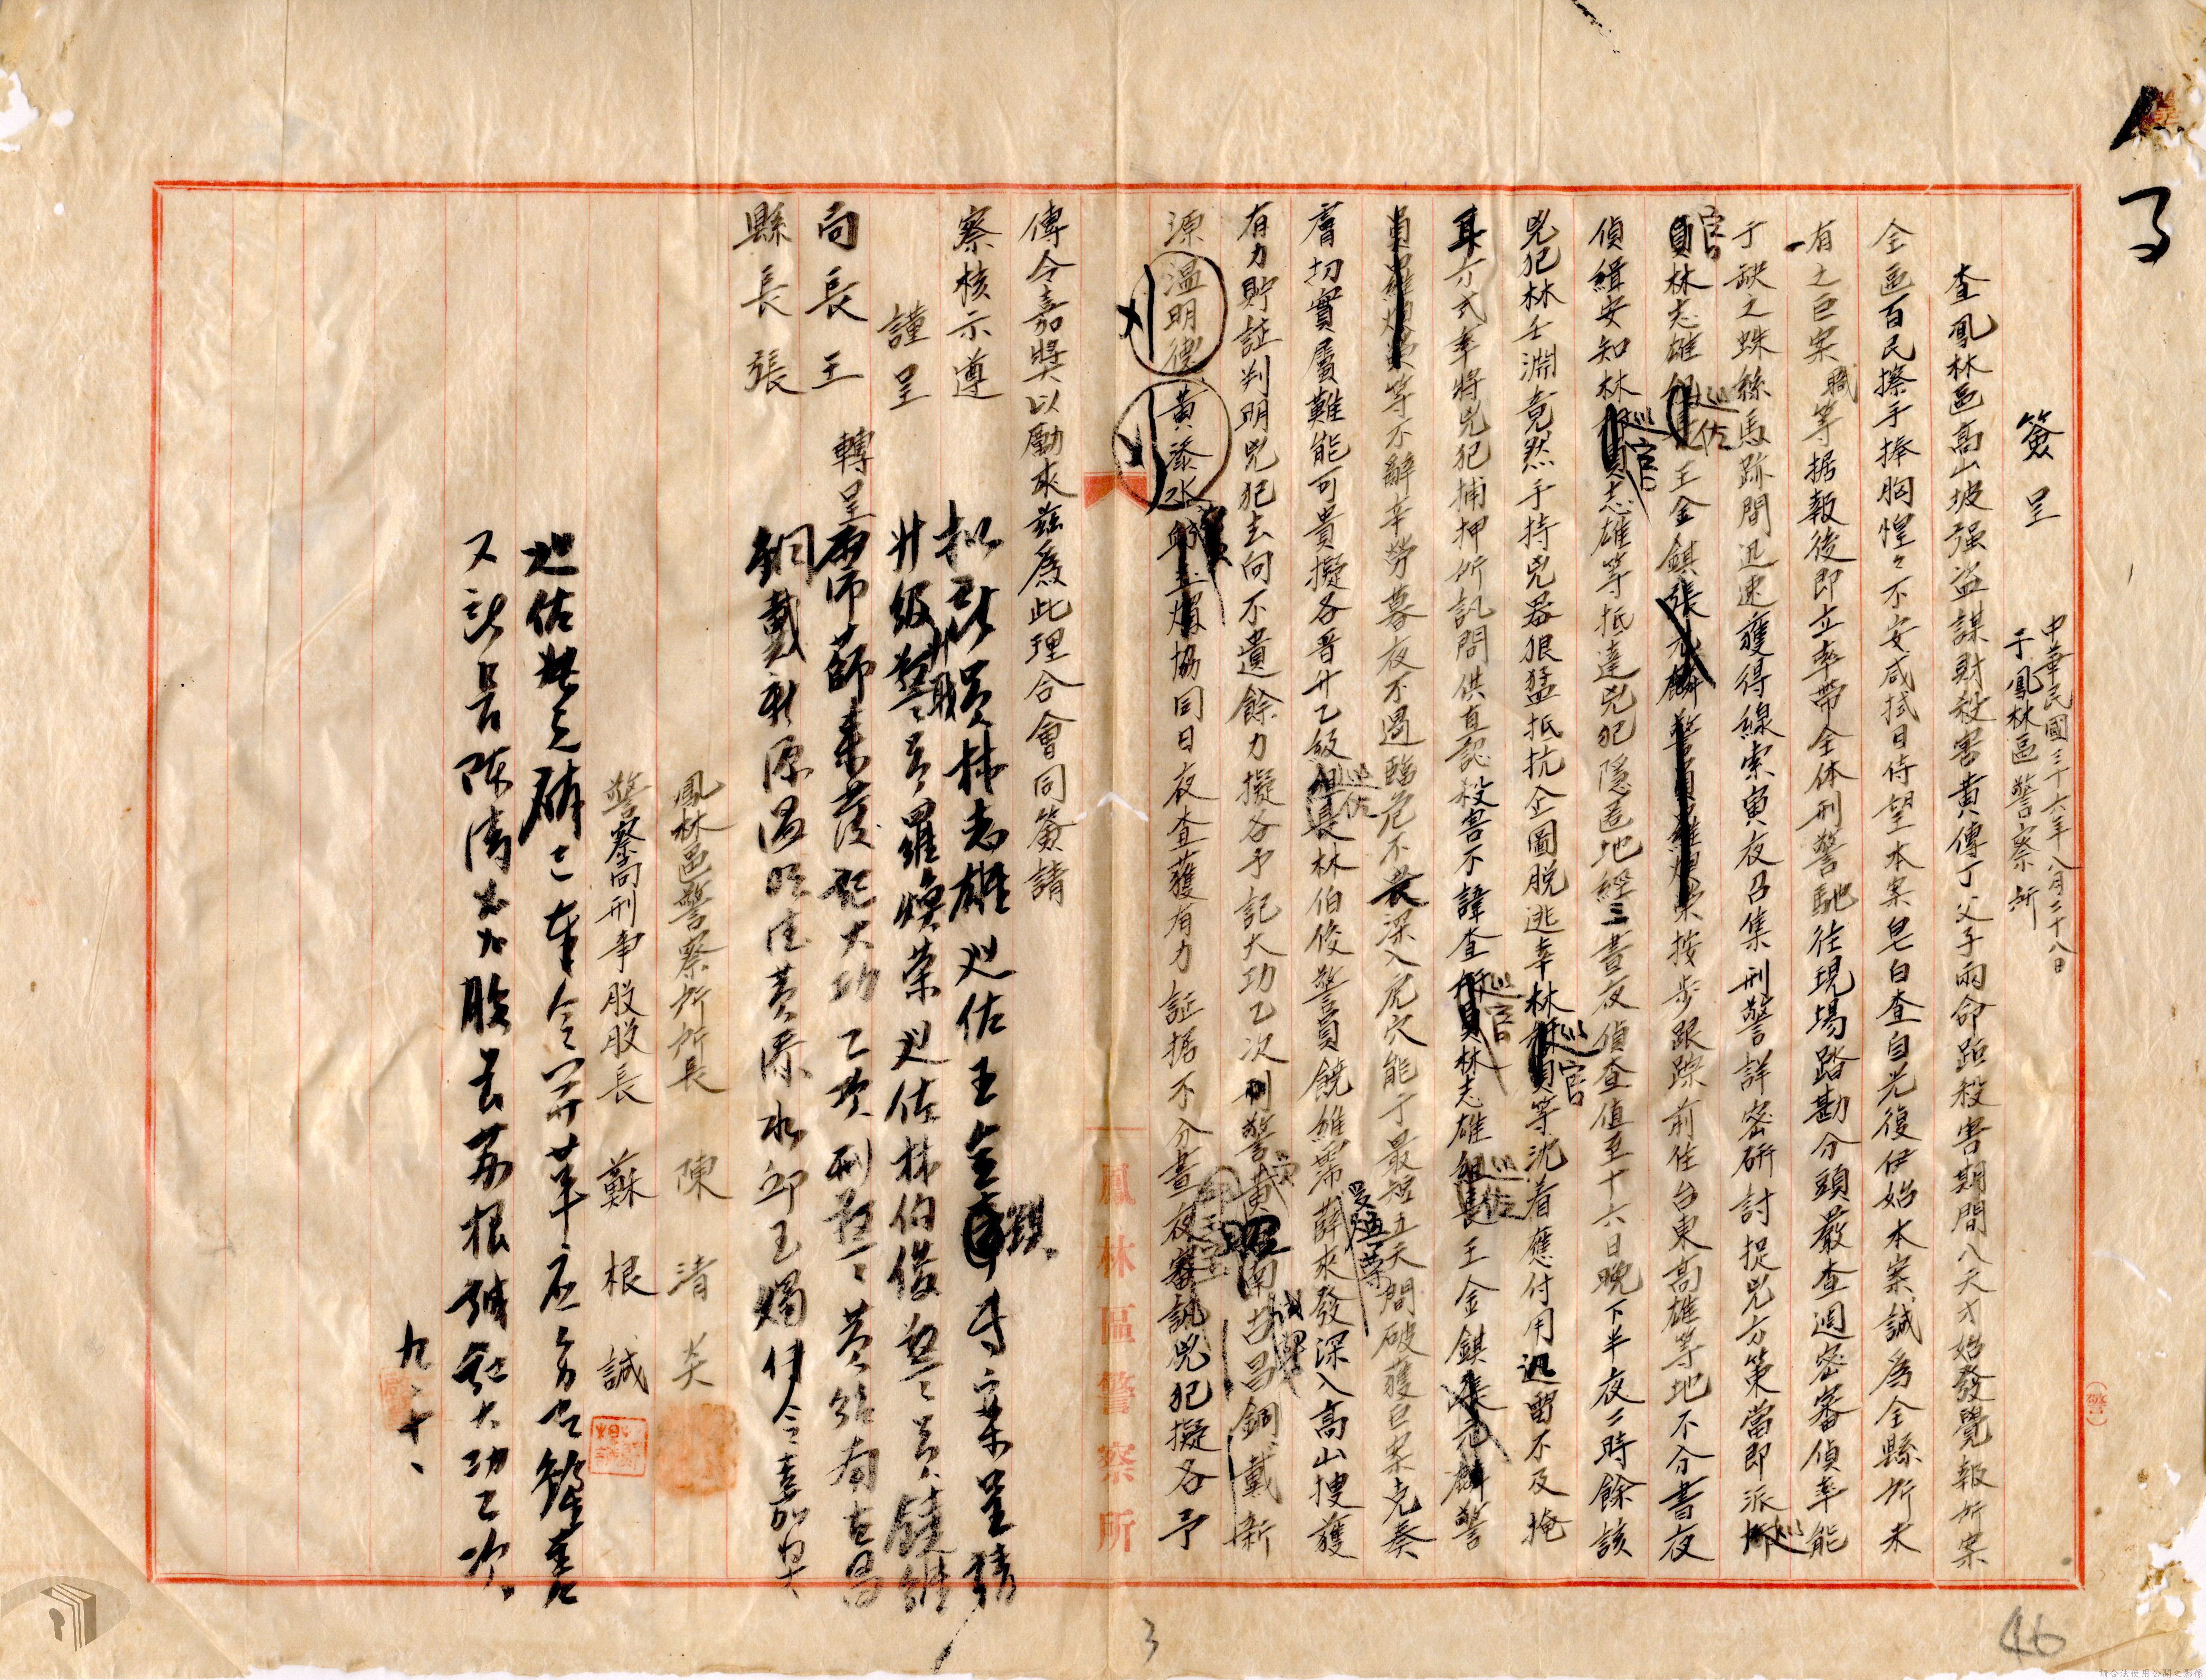 簽呈
中華民國三十六年八月二十八日
于鳳林區警察所
查鳳林區高山坡强盜謀財殺害黃傳丁父子兩命距殺害期間八天才始發覺報所案
全區百民擦手捧胸惶々不安咸拭目待望本案皂白查自光復伊始本案誠為全縣所未
有之巨案職等据報後即立率帶全体刑警馳往現場踏勘分頭嚴查週密審偵率能
于缺之蛛絲馬跡間迅速獲得線索寅夜召集刑警詳密研討捉兇方策當即派巡
官林志雄巡佐王金錤張元麟警員羅煥榮按步跟踪前往台東高雄等地不分晝夜
偵緝安知林巡官志雄等抵達兇犯隱匿地經三晝夜偵查值至十六日晚下半夜二時餘該
兇犯林壬淵竟然手持兇器狠猛抵抗企圖脫逃幸林巡官等沈着應付用迅雷不及掩
耳方式率將兇犯捕押所訊問供直認殺害不諱查巡官林志雄巡佐王金錤張元麟警
員羅煥榮等不辭辛勞暮夜不過臨危不畏深入虎穴能于最短五天間破獲巨案克奏
膚功實屬難能可貴擬各晋升乙級巡佐林伯俊警員饒維霈薛來發深入高山搜獲
有力贓証判明兇犯去向不遺餘力擬各予記大功乙次刑警黃昭南古昌銅戴新
源溫明德黃添水邱玉煝協同日夜查獲有力証据不分晝夜審訊兇犯擬各予
傳令嘉獎以勵來茲為此理合會同簽請
察核示遵
謹呈
局長王 轉呈
縣長張
鳳林區警察所所長 陳清炎
警察局刑事股股長 蘇根誠
擬請將巡官林志雄巡佐王金錤專案呈請
升級警員羅煥榮升職巡佐林伯俊警員饒維
霈薛來發記大功乙次刑警黃昭南古昌
銅戴新源溫明德黃添水邱玉煝傳令嘉獎
又該長陳清炎股長蘇根誠記大功乙次
九、十、
鳳林區警察所
46
3